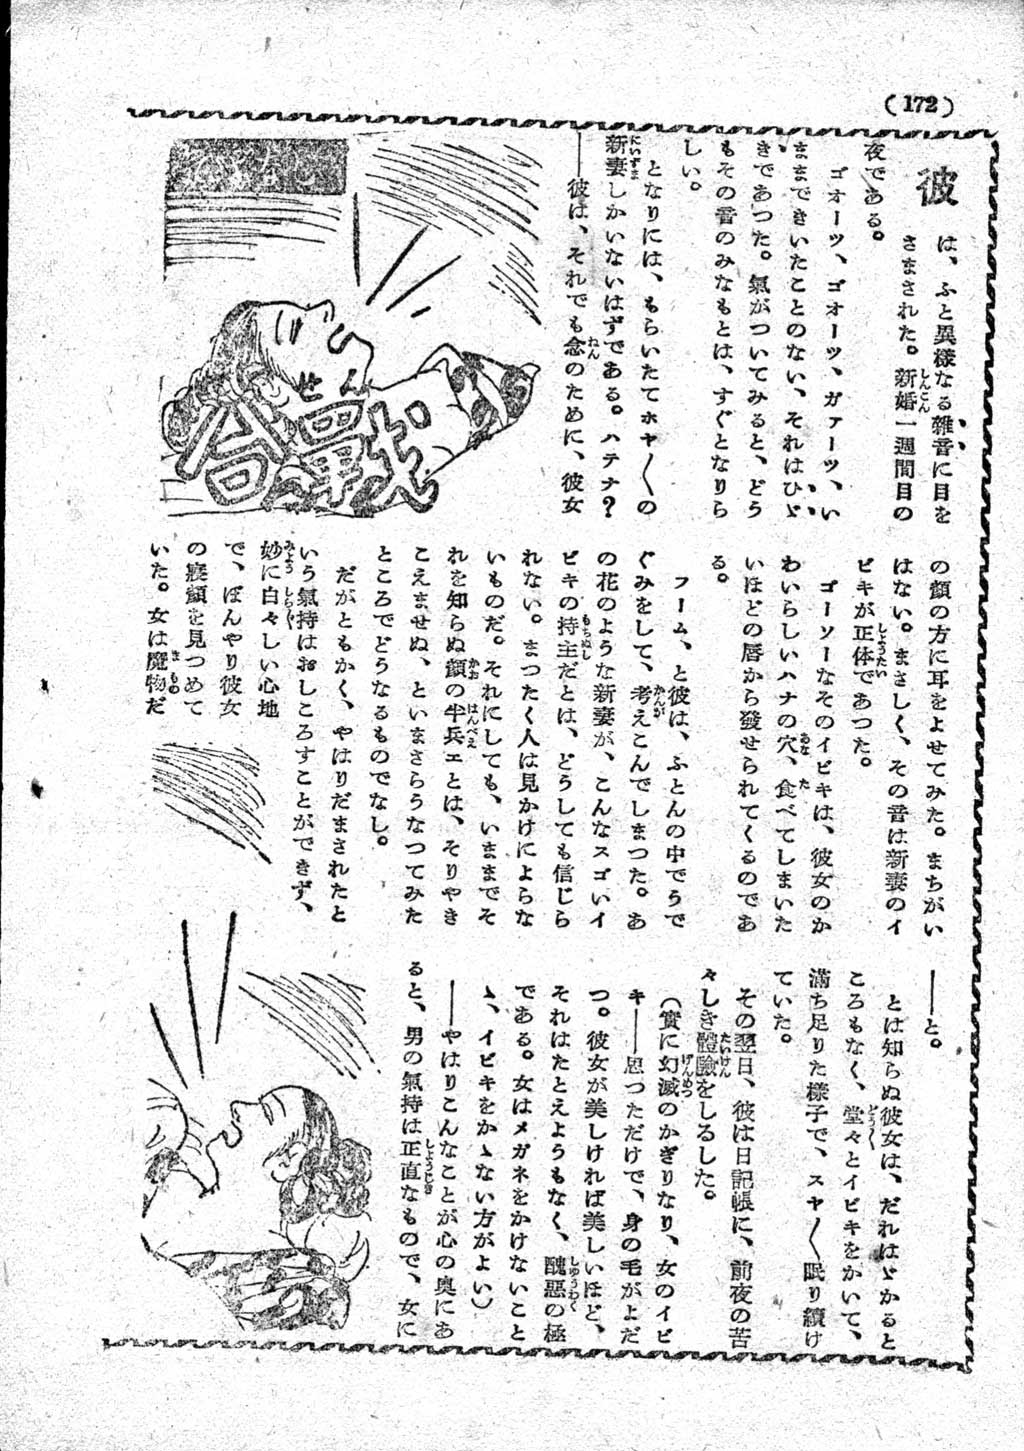 (172)
彼
は、ふと異様なる雑音に目を
さまされた。新婚一週間目の
夜である。
ゴオーツ、ゴオーツ、ガァーツ、い
ままできいたことのない、それはひゞ
きであつた。氣がついてみると、どう
もその音のみなもとは、すぐとなりら
しい。
となりには、もらいたてホヤ〱の
新妻しかいないはずである。ハテナ?
――彼は、それでも念のために、彼女
合戰
せん
の顔の方に耳をよせてみた。まちがい
はない。まさしく、その音は新妻のイ
ビキが正体であつた。
ゴーソーなそのイビキは、彼女のか
わいらしいハナの穴、食べてしまいた
いほどの唇から發せられてくるのであ
る。
フーム、と彼は、ふとんの中でうで
ぐみをして、考えこんでしまつた。あ
の花のような新妻が、こんなスゴいイ
ビキの持主だとは、どうしても信じら
れない。まつたく人は見かけによらな
いものだ。それにしても、いままでそ
れを知らぬ顔の半兵エとは、そりやき
こえませぬ、といまさらうなつてみた
ところでどうなるものでなし。
だがともかく、やはりだまされたと
いう氣持はおしころすことができず、
妙に白々しい心地
で、ぼんやり彼女
の寝顔を見つめて
いた。女は魔物だ
――と。
とは知らぬ彼女は、だれはゞかると
ころもなく、堂々とイビキをかいて、
滿ち足りた様子で、スヤ〱眠り續け
ていた。
その翌日、彼は日記帳に、前夜の苦
々しき體驗をしるした。
(實に幻滅のかぎりなり、女のイビ
キ――思つただけで、身の毛がよだ
つ。彼女が美しければ美しいほど、
それはたとえようもなく、醜惡の極
である。女はメガネをかけないこと
ゝ、イビキをかゝない方がよい)
――やはりこんなことが心の奥にあ
ると、男の氣持は正直なもので、女に